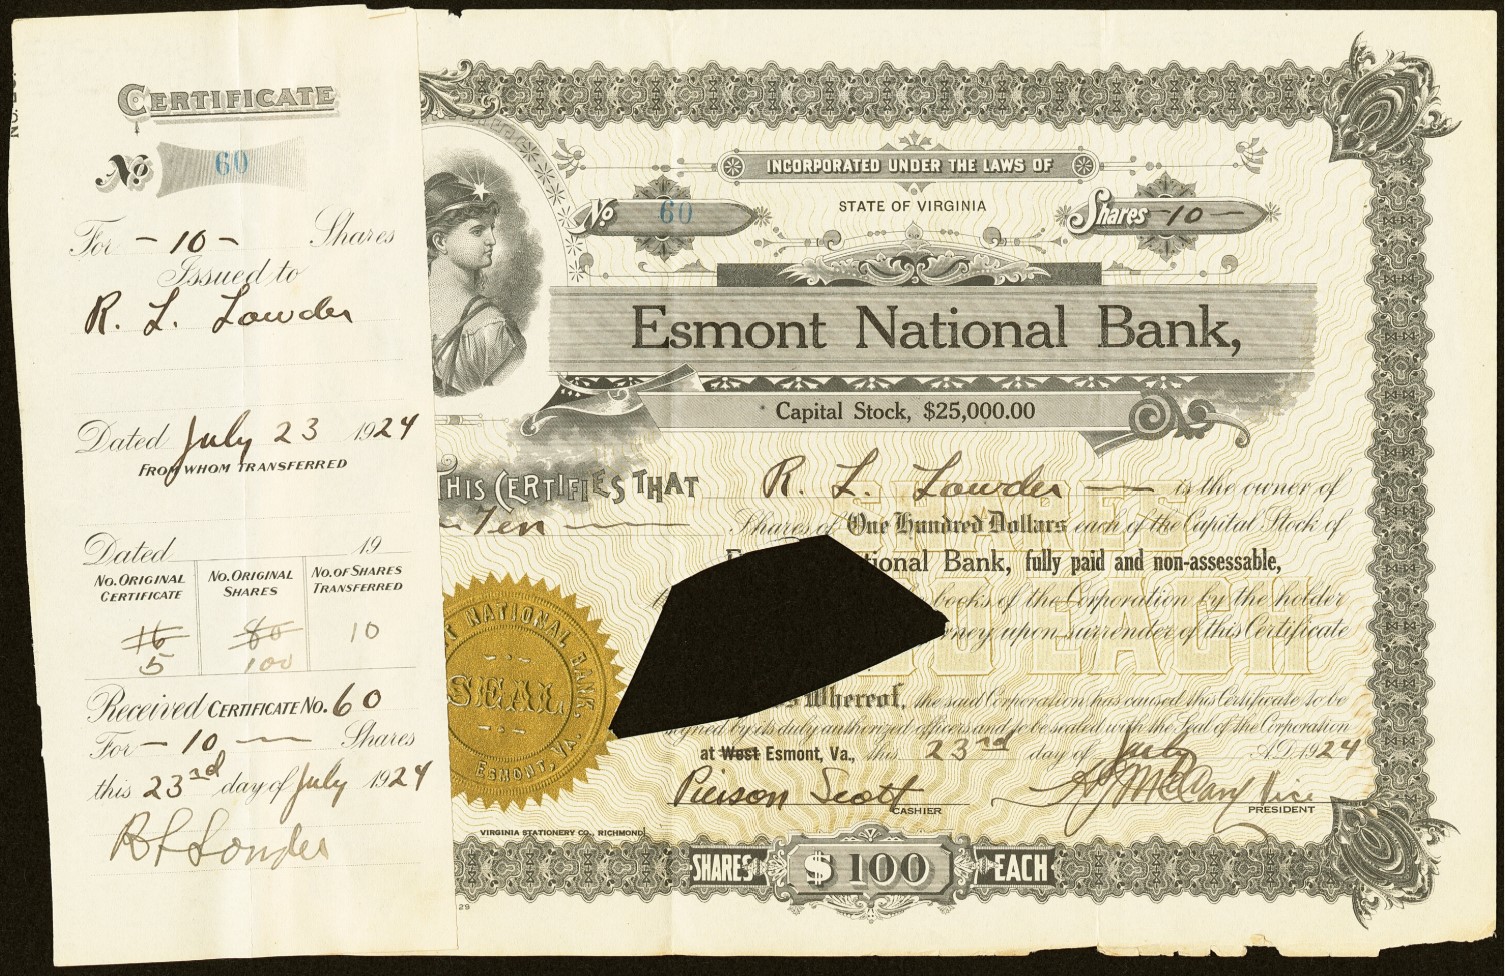 CERTIFICATE
No. 60
For - 10 - Shares
Issued to
R. L. Lowder
Dated July 23 1924
FROM WHOM TRANSFERRED
Dated 19
No. ORIGINAL CERTIFICATE
No. ORIGINAL SHARES
No. OF SHARES TRANSFERRED
16 80 10
5 100
Received CERTIFICATE No. 60
For - 10 — Shares
this 23rd day of July 1924
R L Lowder
INCORPORATED UNDER THE LAWS OF
STATE OF VIRGINIA
No 60
Shares -10-
Esmont National Bank,
Capital Stock, $25,000.00
THIS CERTIFIES THAT R. L. Lowder — is the owner of
Ten — Shares of One Hundred Dollars each of the Capital Stock of
tional Bank, fully paid and non-assessable,
books of the Corporation by the holder
rney upon surrender of this Certificate
s Whereof, the said Corporation has caused this Certificate to be
signed by its duly authorized officers and to be sealed with the Seal of the Corporation
at West Esmont, Va., this 23rd day of July A.D. 1924
Pierson Scott CASHIER
Vice PRESIDENT
SHARES $100 EACH
T NATIONAL BANK,
SEAL
ESMONT, VA.
VIRGINIA STATIONERY CO., RICHMOND
SHARES $100 EACH
29